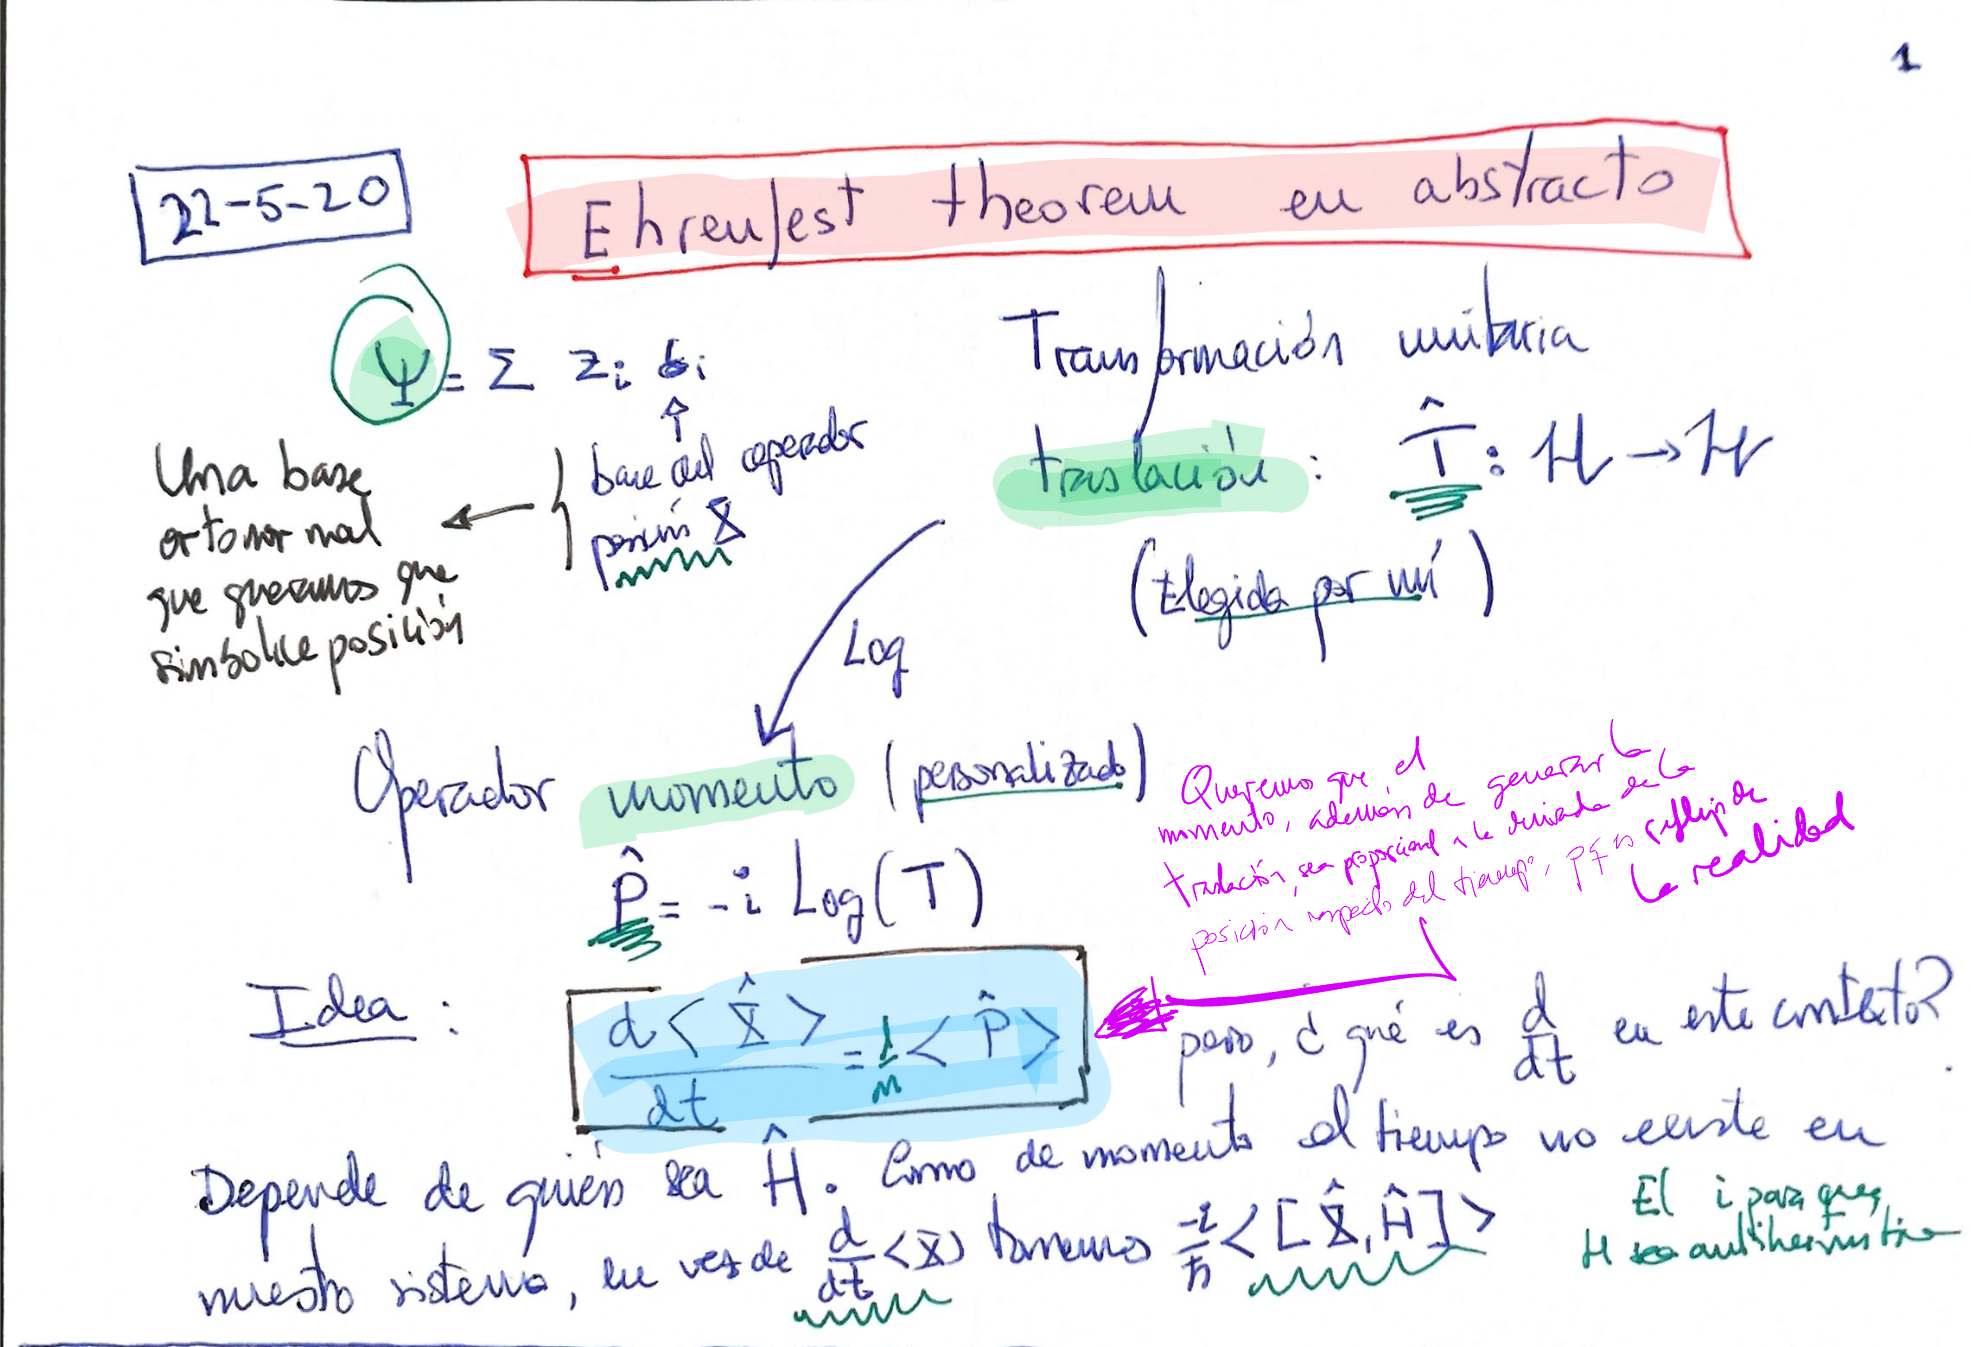 1
22-5-20
Ehrenfest theorem en abstracto
Ψ = Σ zᵢ bᵢ
base del operador
posición X̂
Una base
ortonormal
que queramos que
simbolice posición
Transformación unitaria
traslación: T̂: H → H
(Elegida por mí)
Log
Operador momento (personalizado)
P̂ = -i Log(T)
Queremos que el
momento, además de generar la
traslación, sea proporcional a la derivada de la
posición respecto del tiempo, pq es reflejo de
la realidad
Idea: d<X̂>/dt = 1/m <P̂>
pero, ¿qué es d/dt en este contexto?
Depende de quién sea Ĥ. Como de momento el tiempo no existe en
nuestro sistema, en vez de d/dt <X> tomemos -i/ħ <[X̂, Ĥ]>
El i para que
H sea antihermítica